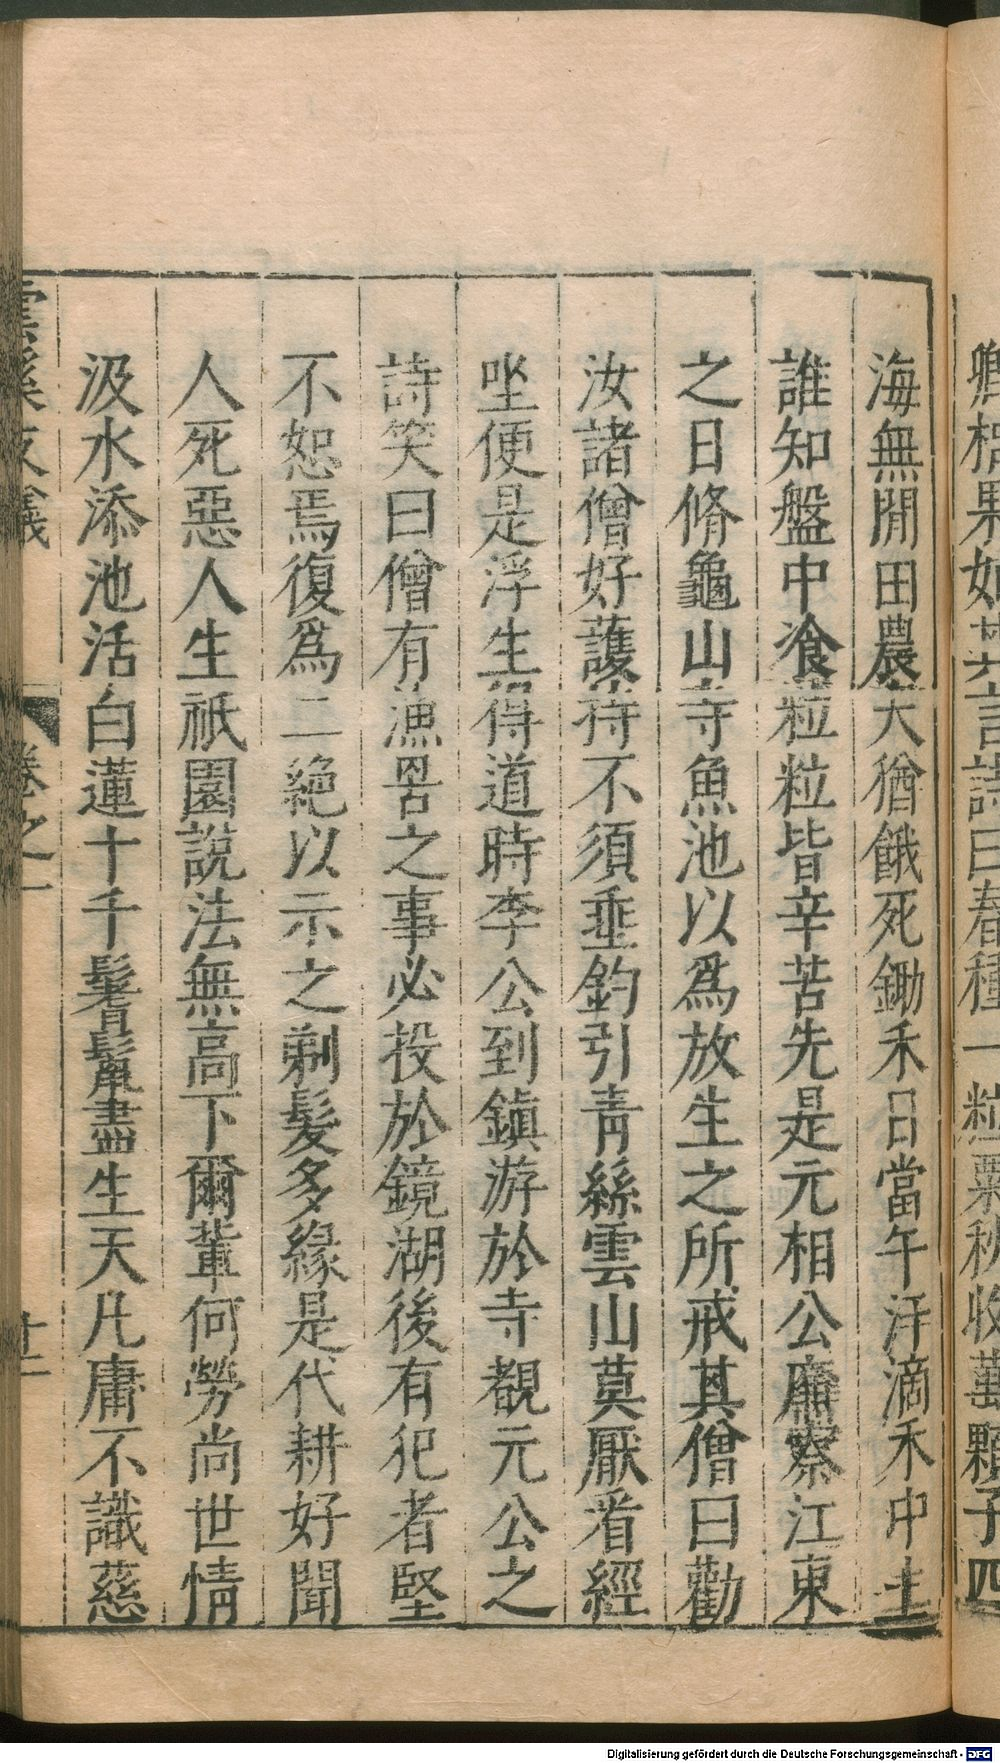 卿相果如其言詩曰春種一粒粟秋收萬顆子四
海無閒田農夫猶餓死鋤禾日當午汗滴禾中土
誰知盤中飡粒粒皆辛苦先是元相公廉察江東
之日脩龜山寺魚池以爲放生之所戒其僧曰勸
汝諸僧好護持不須垂釣引青絲雲山莫厭看經
坐便是浮生得道時李公到鎮游於寺覩元公之
詩笑曰僧有漁罟之事必投於鏡湖後有犯者堅
不恕焉復爲二絕以示之剃髮多緣是代耕好聞
人死惡人生祇園說法無高下爾輩何勞尚世情
汲水添池活白蓮十千鬐鬣盡生天凡庸不識慈
雲溪友議 卷之一 十二
Digitalisierung gefördert durch die Deutsche Forschungsgemeinschaft - DFG